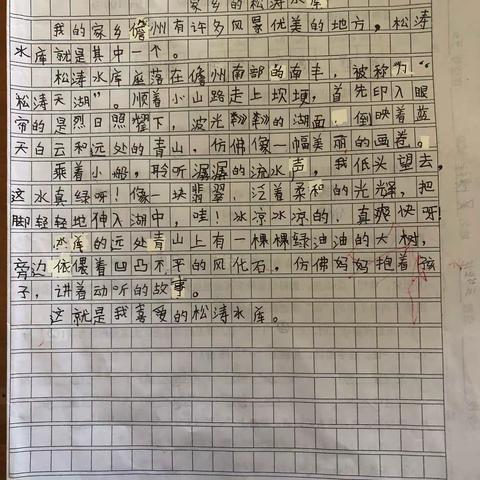 家乡的松涛水库
我的家乡儋州有许多风景优美的地方，松涛
水库就是其中一个。
松涛水库座落在儋州南部的南丰，被称为“
松涛天湖”。顺着小山路走上坝埂，首先印入眼
帘的是烈日照耀下，波光粼粼的湖面，倒映着蓝
天白云和远处的青山，仿佛像一幅美丽的画卷。
乘着小船，聆听潺潺的流水声，我低头望去，
这水真绿呀！像一块翡翠，泛着柔和的光辉，把
脚轻轻地伸入湖中，哇！冰凉冰凉的，真爽快呀！
的远处青山上有一棵棵绿油油的大树，
旁边依偎着凹凸不平的风化石，仿佛妈妈抱着孩
子，讲着动听的故事。
这就是我喜爱的松涛水库。